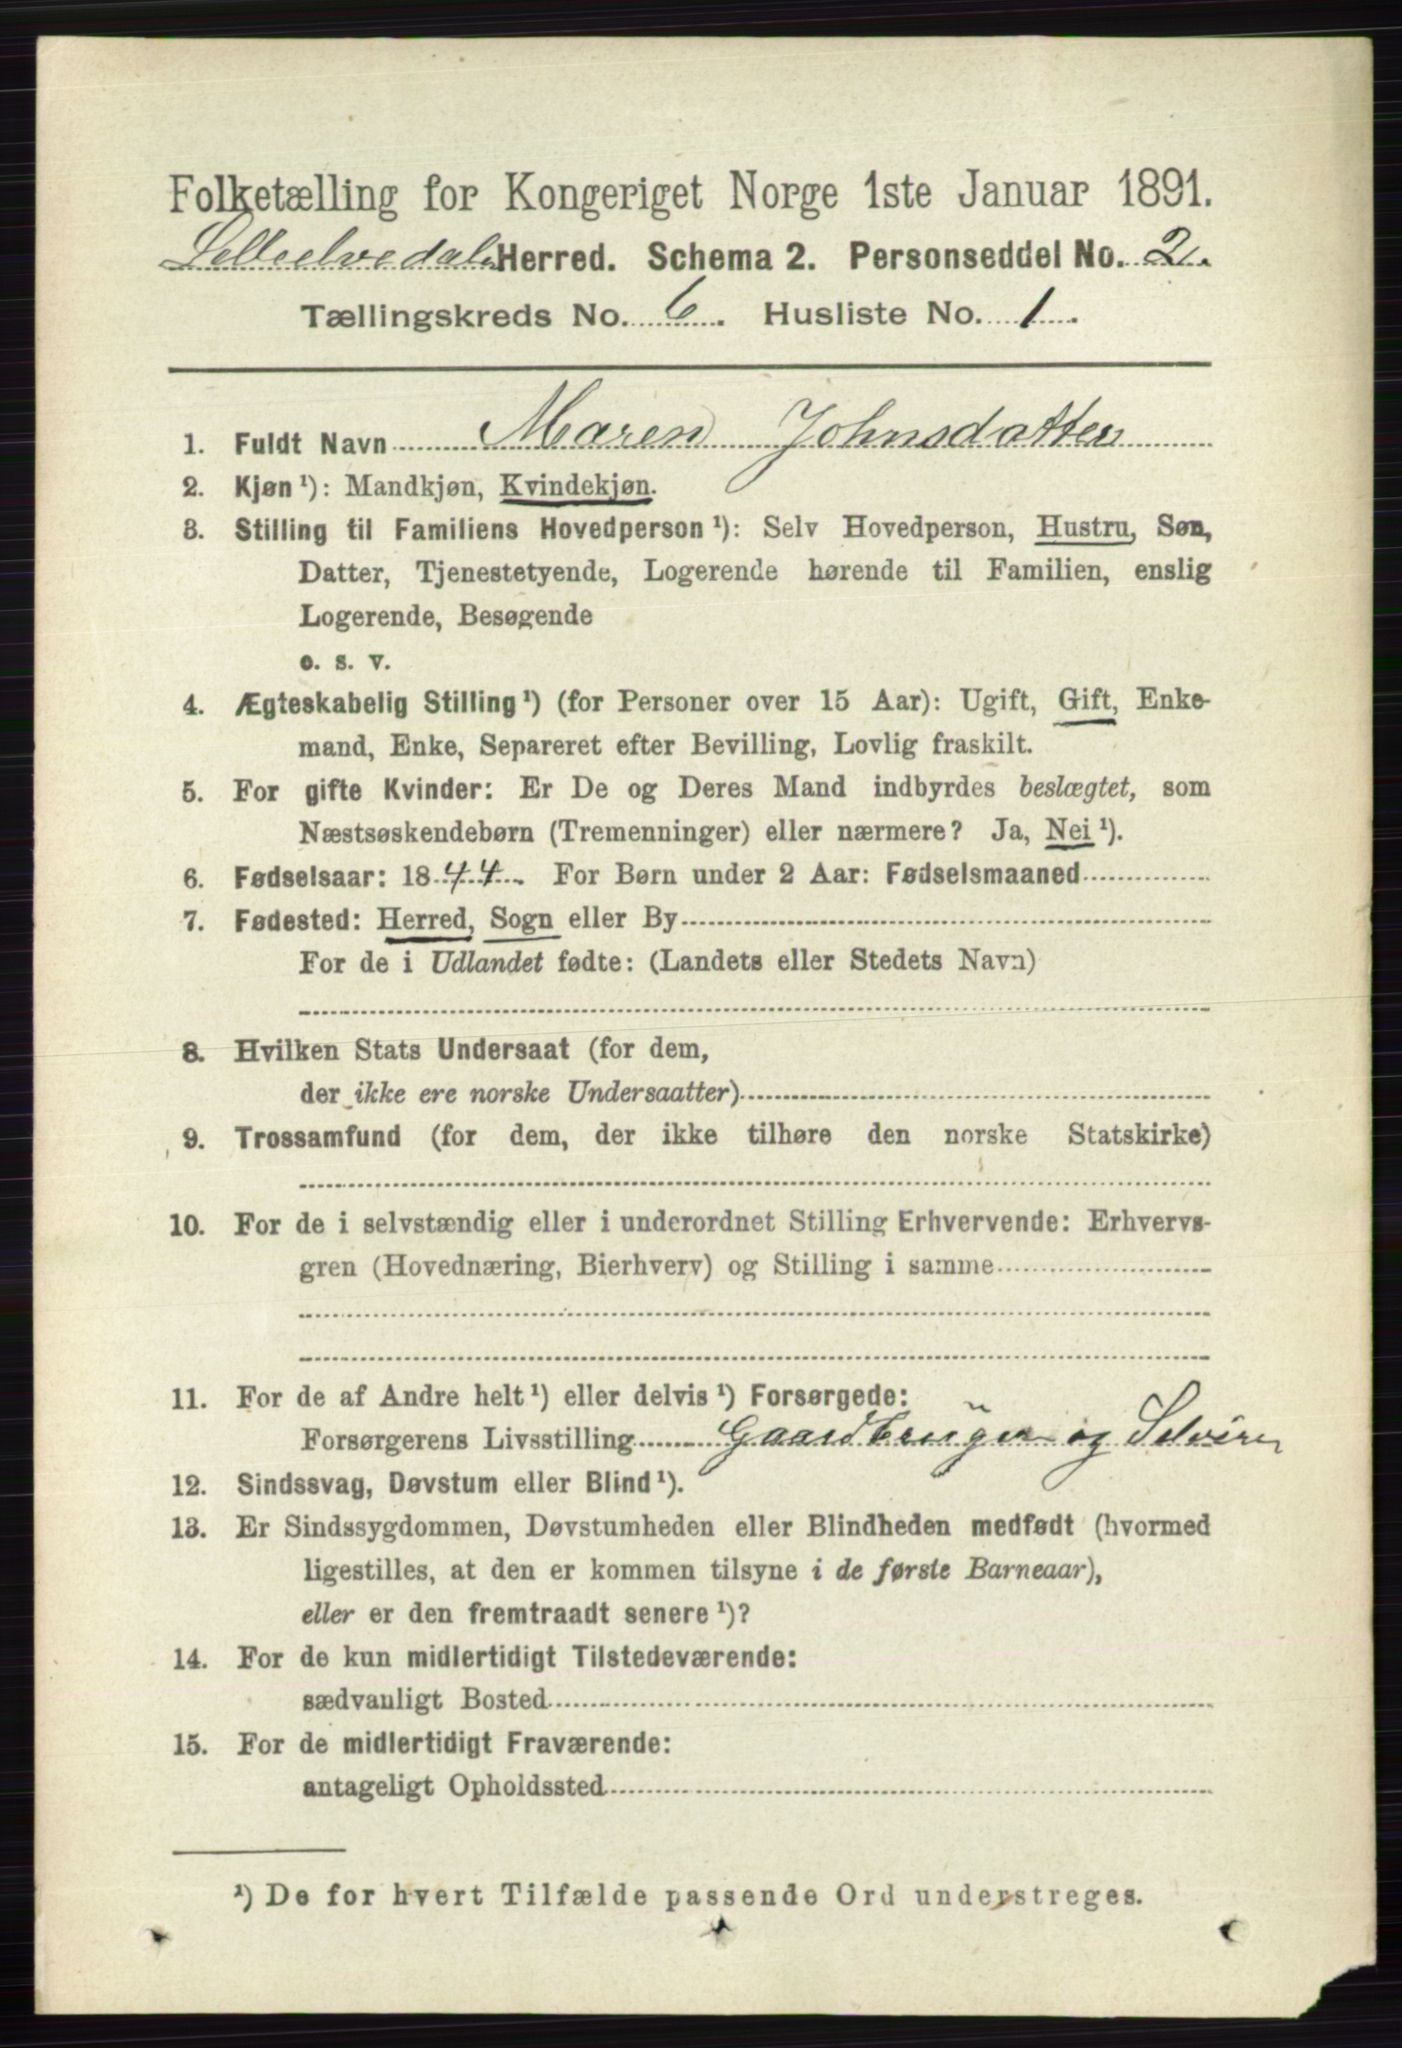 Folketælling for Kongeriget Norge 1ste Januar 1891.
Lilleelvedal Herred. Schema 2. Personseddel No. 2.
Tællingskreds No. 6. Husliste No. 1.
1. Fuldt Navn Maren Johnsdatter
2. Kjøn ¹): Mandkjøn, Kvindekjøn.
3. Stilling til Familiens Hovedperson ¹): Selv Hovedperson, Hustru, Søn,
Datter, Tjenestetyende, Logerende hørende til Familien, enslig
Logerende, Besøgende
o. s. v.
4. Ægteskabelig Stilling ¹) (for Personer over 15 Aar): Ugift, Gift, Enke-
mand, Enke, Separeret efter Bevilling, Lovlig fraskilt.
5. For gifte Kvinder: Er De og Deres Mand indbyrdes beslægtet, som
Næstsøskendebørn (Tremenninger) eller nærmere? Ja, Nei ¹).
6. Fødselsaar: 1844. For Børn under 2 Aar: Fødselsmaaned
7. Fødested: Herred, Sogn eller By
For de i Udlandet fødte: (Landets eller Stedets Navn)
8. Hvilken Stats Undersaat (for dem,
der ikke ere norske Undersaatter)
9. Trossamfund (for dem, der ikke tilhøre den norske Statskirke)
10. For de i selvstændig eller i underordnet Stilling Erhvervende: Erhvervs-
gren (Hovednæring, Bierhverv) og Stilling i samme
11. For de af Andre helt ¹) eller delvis ¹) Forsørgede:
Forsørgerens Livsstilling Gaardbruger og Selveier
12. Sindssvag, Døvstum eller Blind ¹).
13. Er Sindssygdommen, Døvstumheden eller Blindheden medfødt (hvormed
ligestilles, at den er kommen tilsyne i de første Barneaar),
eller er den fremtraadt senere ¹)?
14. For de kun midlertidigt Tilstedeværende:
sædvanligt Bosted
15. For de midlertidigt Fraværende:
antageligt Opholdssted
¹) De for hvert Tilfælde passende Ord understreges.